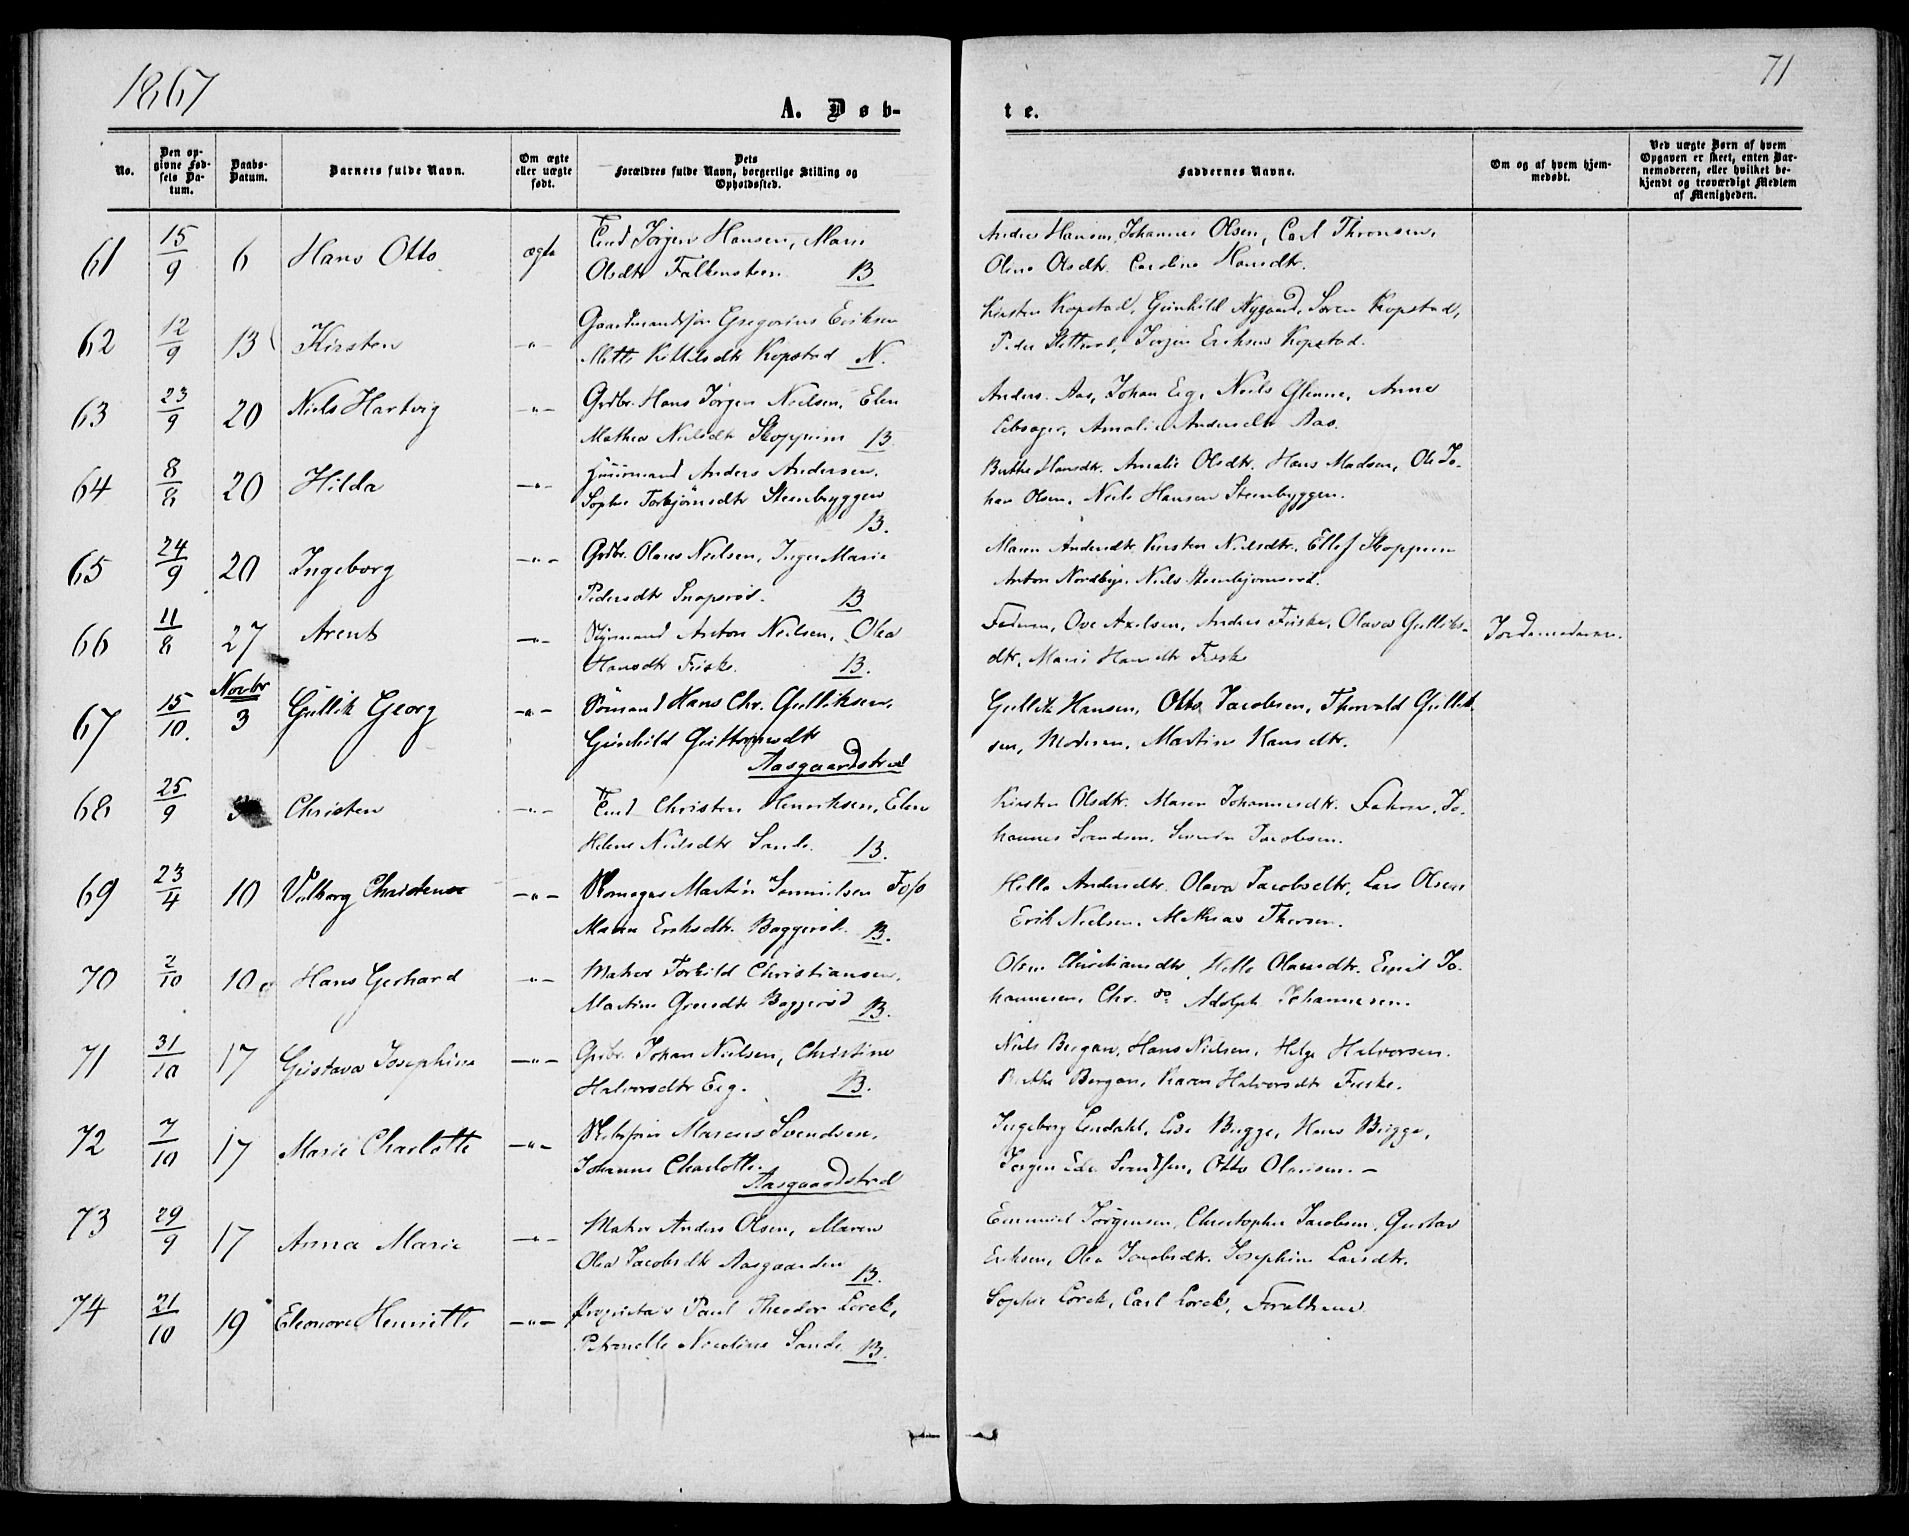 1867
71
A. Døb-
te.
No.
Den opgivne Fødsels Datum.
Daabs-Datum.
Barnets fulde Navn.
Om ægte eller uægte født.
Dets Forældres fulde Navn, borgerlige Stilling og Opholdssted.
Faddernes Navne.
Om og af hvem hjemmedøbt.
Ved uægte Børn af hvem Opgaven er skeet, enten Barnemoderen, eller hvilket bekjendt og troværdigt Medlem af Menigheden.
61 15/9 6 Hans Otto ægte Jørgen Hansen, Maren Andrea Hansen, Johannes Olsen, Carl Thronsen,
Olsdtr Falkensteen. B Olsdtr. Hansdtr.
62 12/9 13 Kirsten -"- Gregorius Eriksen Kirsten Kopstad, Gunhild Nygaard, Søren Kopstad,
Kopstad N. Peder Jørgen Eriksen Kopstad.
63 23/9 20 Niels Hartvig -"- Grdbr. Hans Jørgen Nielsen, Elen Anders Aas, Johan Eeg, Niels Glenne, Anne
Mathea Nielsdtr Skoppum B. Amalie Andersdtr Aas.
64 8/8 20 Hilda -"- Huusmand Anders Andersen, Berthe Hansdtr. Amalie Olsdtr. Hans Madsen, Ole Jo-
Sophie Torbjörnsdtr Steenbryggen B. han Olsen, Niels Hansen Steenbryggen.
65 24/9 20 Ingeborg -"- Grdbr. Olaus Nielsen, Inger Marie Maren Andersdtr Kirsten Nielsdtr. Ellef Skoppum
Pedersdtr Snapsrød. B Anton Nordbye. Niels
66 11/8 27 Arent -"- Anton Nielsen, Olea Faderen, Ove Axelsen, Anders Friske, Olava Gulliks- Jordemoderen.
Hansdtr Friske. B. dtr, Hansdtr Friske
67 15/10. Novbr 3 Gullik Georg -"- Sømand Hans Chr. Gulliksen, Gullik Hansen, Otto Jacobsen, Thorvald Gullik-
Gunhild Guttormsdtr Aasgaardstrand sen, Moderen, Martine Hansdtr.
68 25/9 Christen -"- Christen Henriksen, Elen Kirsten Olsdtr. Maren Johannesdtr. Faderen, Jo-
Helene Nielsdtr Sande. B. hannes Svendsen. Jacobsen.
69 23/4 10 Valborg -"- Martin Foss Helle Andersdtr. Olava Jacobsdtr, Lars Olsen
Maren Eriksdtr. Baggerød. B. Erik Nielsen. Mathias Thorsen.
70 2/10 10 Hans Gerhard -"- Matros Torkild Christiansen, Christiansdtr, Helle Olausdtr. Emil Jo-
Martine Baggerød B. hannesen, Chr. do Adolph Johannesen.
71 31/10 17 Gustava Josephine -"- Grdbr. Johan Nielsen, Christine Niels Bergan, Hans Nielsen, Helge Halvorsen.
Halvorsdtr Eeg. B. Berthe Bergan, Karen Halvorsdtr Friske.
72 7/10 17 Marie Charlotte -"- Marcus Svendsen, Ingeborg Bugge, Hans Bugge,
Johanne Charlotte. Aasgaardstrd Jørgen Svendsen, Otto Olavesen. -
73 29/9 17 Anna Marie -"- Matros Anders Olsen, Maren Emanuel Jørgensen, Christopher Jacobsen, Gustav
Olea Jacobsdtr Aasgaarden B. Eriksen, Olea Jacobsdtr. Josephine Larsdtr.
74 21/10 19 Eleonore Henriette -"- Proprietær Paul Theodor Lorck, Sophie Lorck, Carl Lorck, Forældrene.
Petronelle Nicoline Sande B.